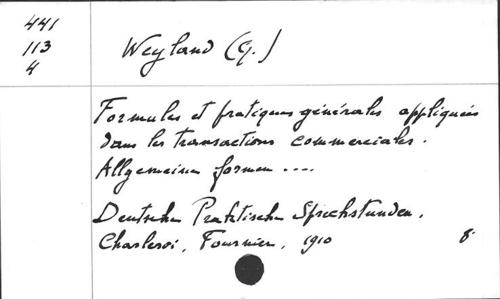 441
113
4
Weyland (G.)
Formules et pratiques générales appliquées
dans les transactions commerciales.
Allgemeinen formen ....
Deutschen Praktischen Sprechstunden.
Charleroi, Fournier, 1910 8°